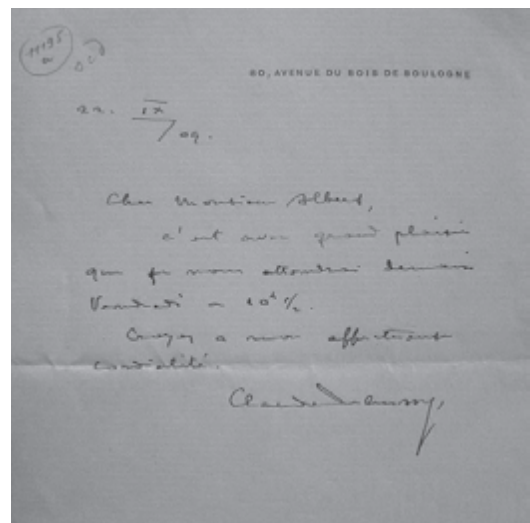 80, AVENUE DU BOIS DE BOULOGNE
22. IX
/ 09.
Cher Monsieur Albert,
c'est avec grand plaisir
que je vous attendrai demain
Vendredi à 10h 1/2.
Croyez à mon affectueuse
cordialité.
Claude Debussy